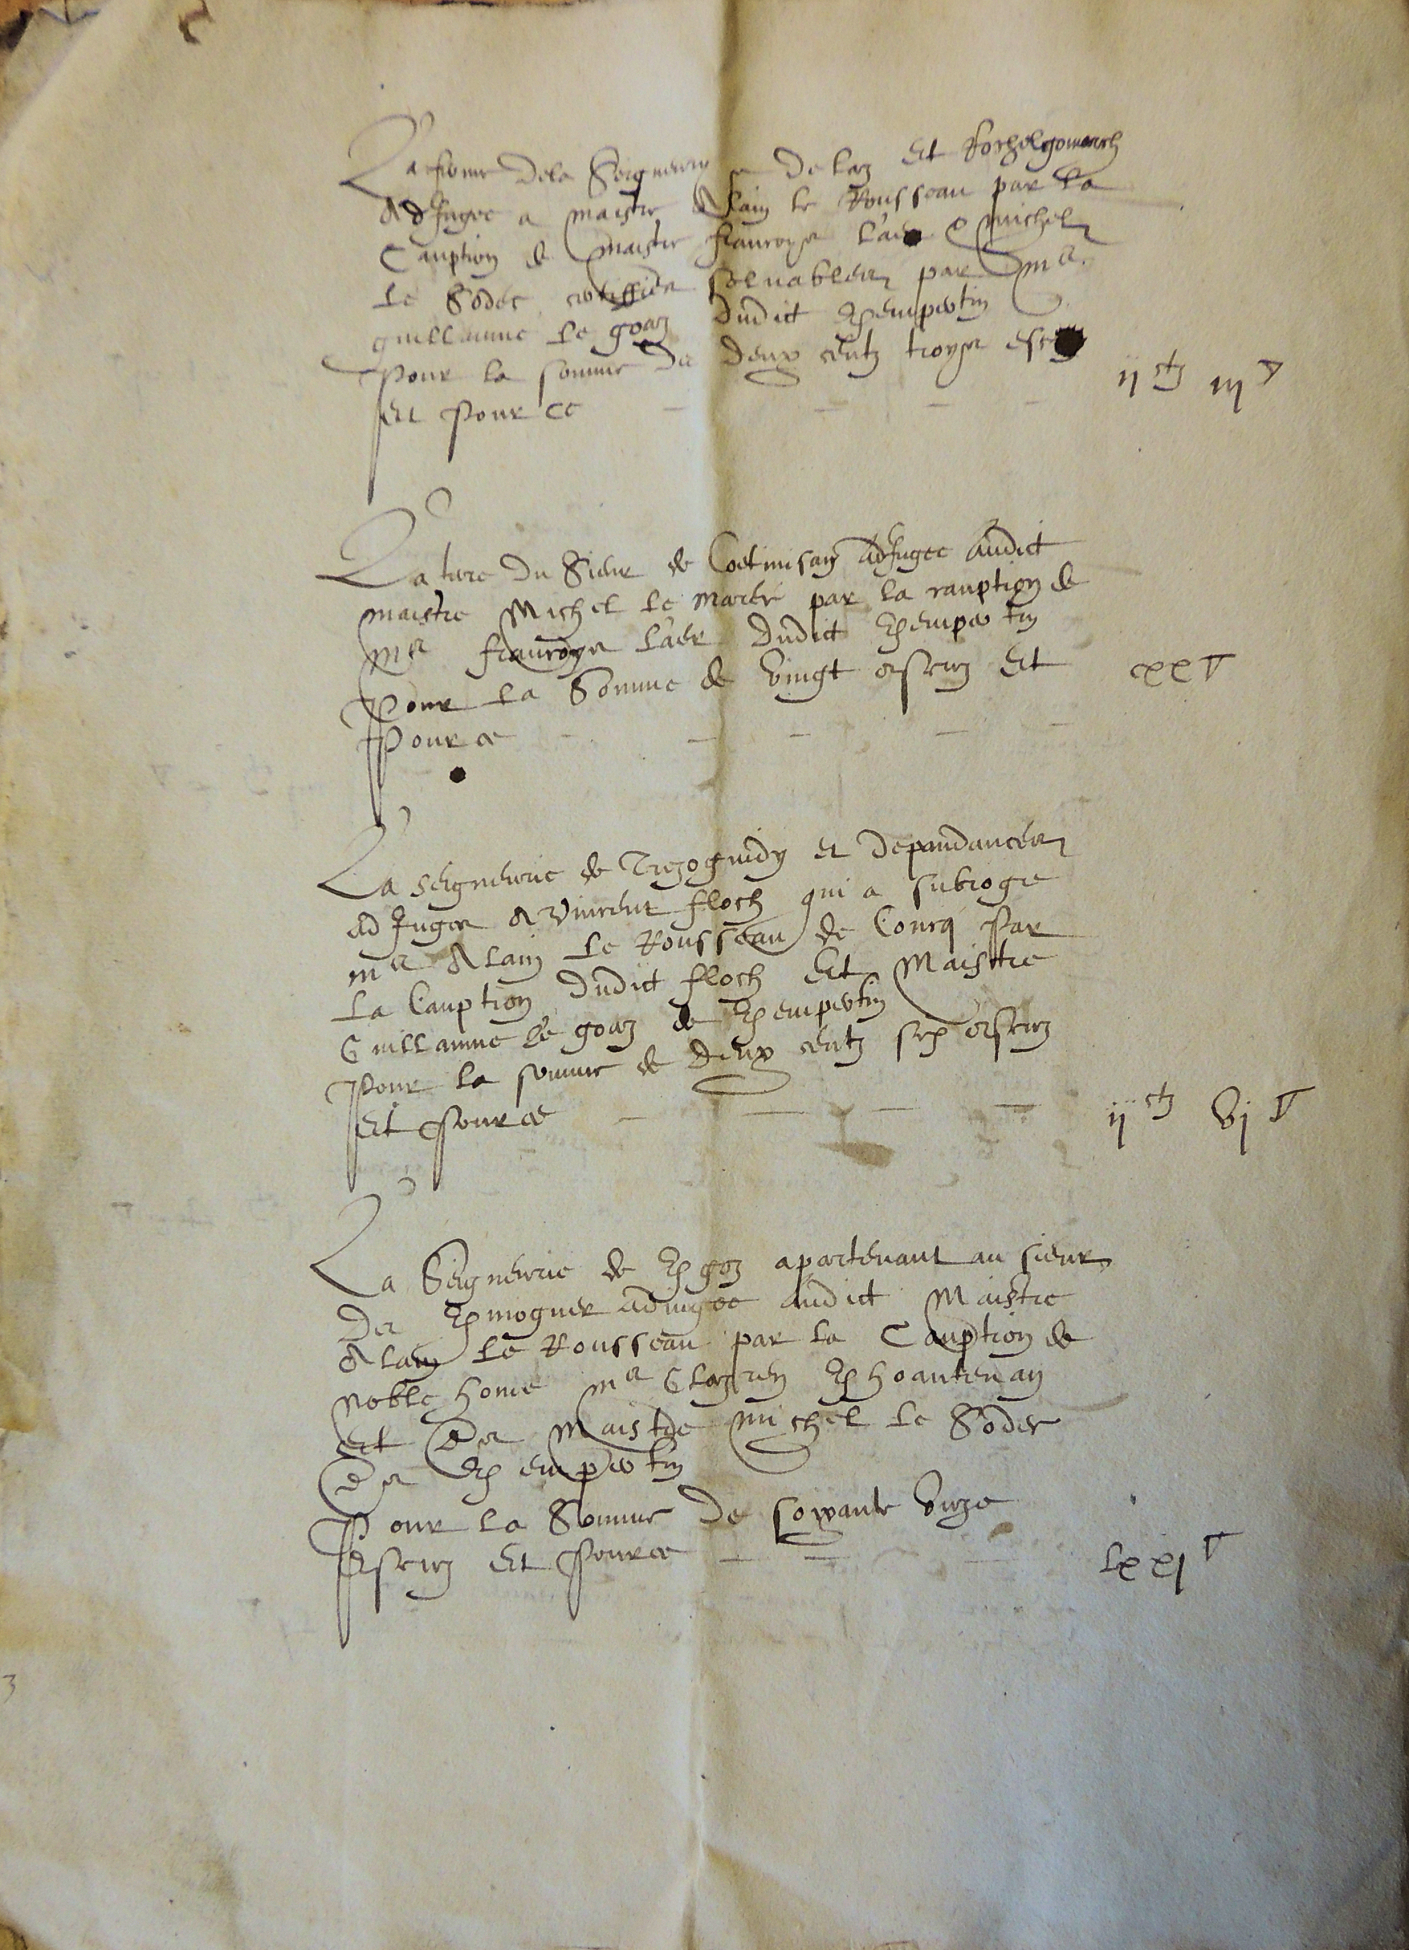 La ferme dela Seigneurie de laz Et Rozhelgomarch
AdJugee a maistre Alain le Rousseau par la
Cauption de maistre francoys laer & michel
le Sodec certiffies solvables par Mᵉ
guillaume le goaz dudict Kempertin
Pour la somme de deux centz troys esc
Et Pour ce
ijᶜᵗᶻ iij
La terre du Sieur de Coetnisan AdJugee Audict
maistre Michel le marec par la cauption de
Mᵉ francoys laer dudict Kempertin
Pour la Somme de Vingt escuz Et
Pour ce
xx
La seigneurie de Trezoguidy et dependances
AdJugee A Vincent floch qui a subroge
mᵉ Alain le Rousseau de Concq Par
la Cauption dudict floch Et Maistre
Guillaume le goaz de Kempertin
Pour la somme de deux centz six escuz
Et Pour ce
ijᶜᵗᶻ vj
La Seigneurie de Kgoz apartenant au sieur
de Kmoguer adiugee audict Maistre
Alain le Rousseau par la Cauption de
noble home mᵉ Khoantenan
Et de Maistre michel le Sodec
de Kempertin
Pour la Somme de soixante unze
Escuz Et Pour ce
lxxj
3